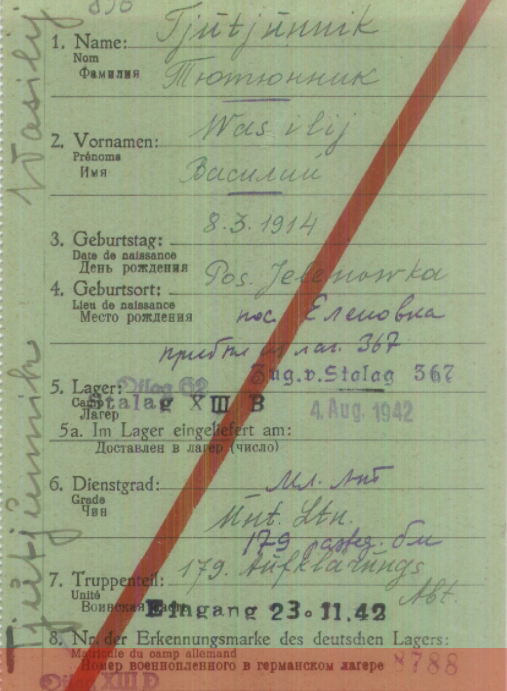 Wasilij
Tjutjunnik
1. Name: Tjutjunnik
Nom
Фамилия Тютюнник
2. Vornamen: Wasilij
Prénoms
Имя Василий
3. Geburtstag: 8.3.1914
Date de naissance
День рождения
4. Geburtsort: Pos. Jelenowka
Lieu de naissance
Место рождения пос. Еленовка
прибыл из лаг. 367
5. Lager: Oflag 62 Zug. v. Stalag 367
Camp Stalag XIII B
Лагерь 4. Aug. 1942
5a. Im Lager eingeliefert am:
Доставлен в лагерь (число)
6. Dienstgrad: Мл. Лт
Grade
Чин Unt. Ltn.
179
7. Truppenteil: 179. Aufklärungs
Unité Abt.
Воинская часть Eingang 23.11.42
8. Nr. der Erkennungsmarke des deutschen Lagers:
Matricule du camp allemand
Номер военнопленного в германском лагере 8788
Oflag XIII D